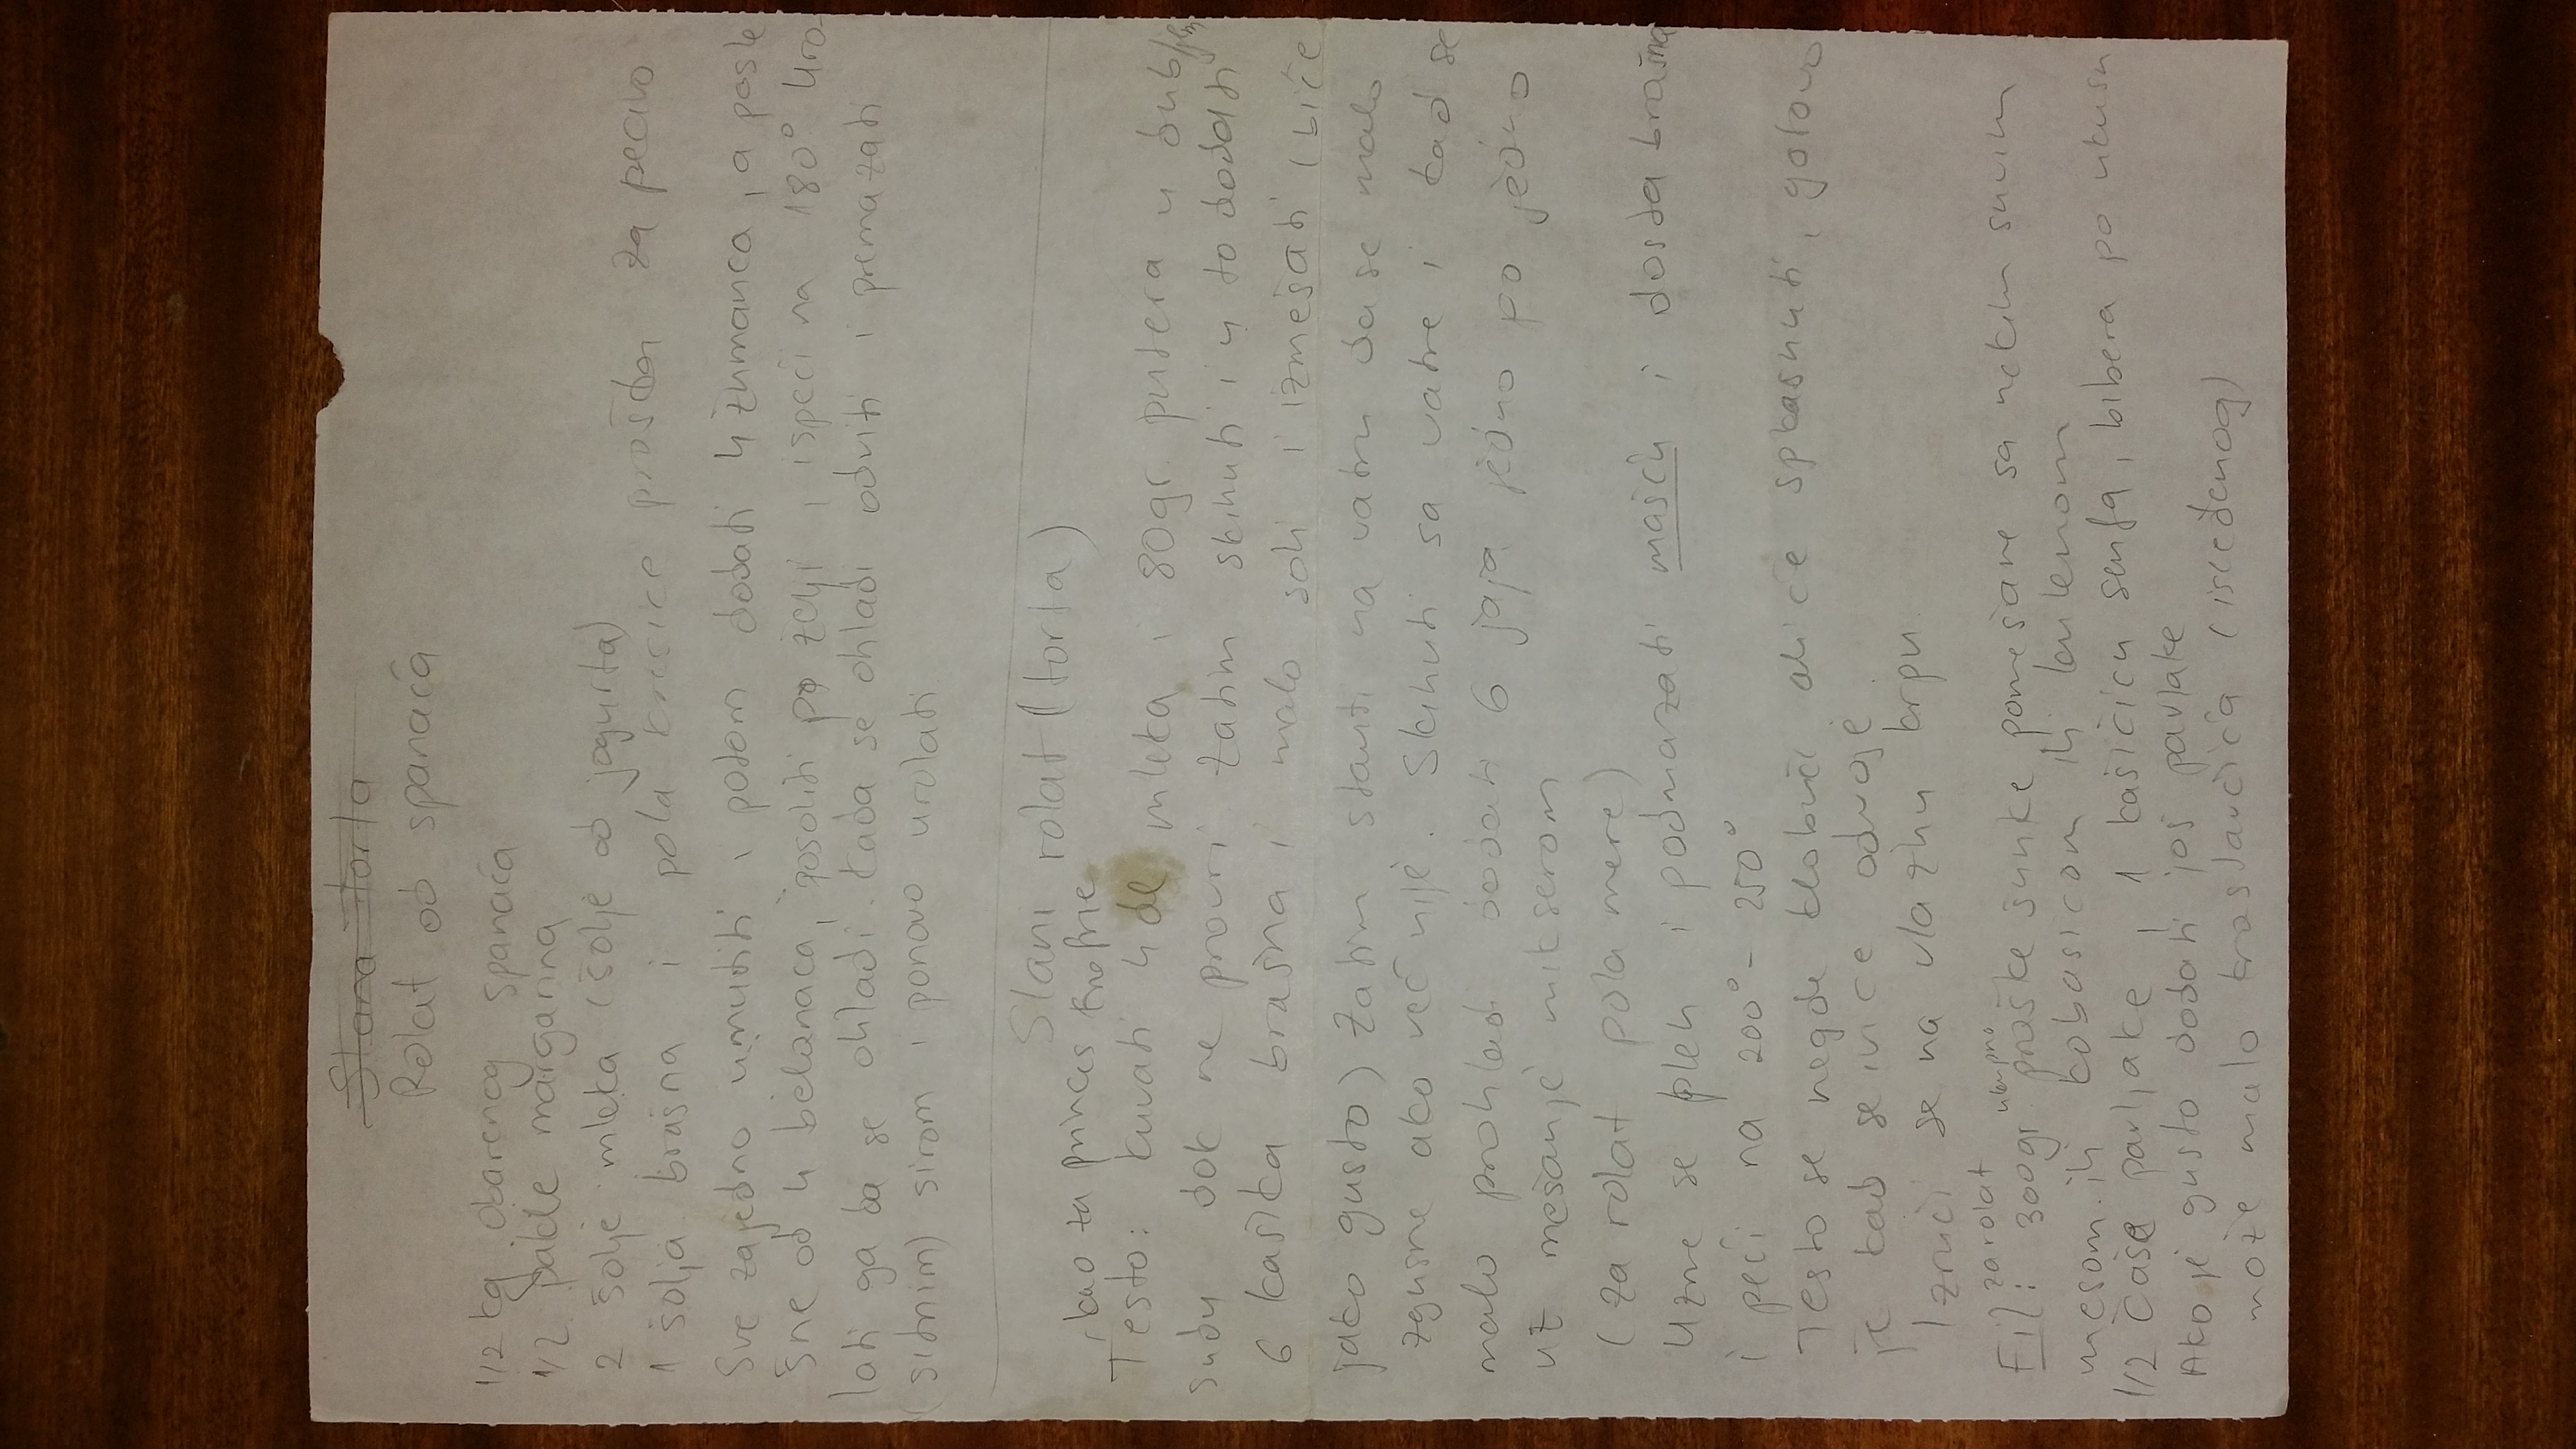 Slana torta
Rolat od spanaća
1/2 kg obarenog spanaća
1/2 pakle margarina
2 šolje mleka (šolje od jogurta)
1 šolja brašna i pola kesice praška za pecivo
Sve zajedno umutiti i potom dodati 4 žumanca, a posle
šne od 4 belanaca, posoliti po želji i ispeći na 180° Uro-
lati ga da se ohladi. Kada se ohladi odviti i premazati
(sitnim) sirom i ponovo urolati.
Slani rolat (torta)
kao za princes krofne
Testo: kuvati 4 dl mleka i 80gr. putera u
sudu dok ne provri zatim skinuti i u to dodati
6 kašika brašna i malo soli i izmešati (biće
jako gusto) zatim staviti na vatru da se malo
zgusne ako već nije. Skinuti sa vatre i kad se
malo prohladi dodati 6 jaja jedno po jedno
uz mešanje mikserom
(za rolat pola mere)
Uzme se pleh i podmazati mašću i dosta brašna
i peći na 200° - 250°
Testo se negde klobuči ali će splasnuti, gotovo
je kad se ivice odvoje
Izruči se na vlažnu krpu
za rolat
Fil: 300gr. praške šunke pomešane sa nekim suvim
mesom ili kobasicom ili kulenom
1/2 čaše pavlake, 1 kašičicu senfa i bibera po ukusu
Ako je gusto dodati još pavlake
može malo krastavčića (isceđenog)